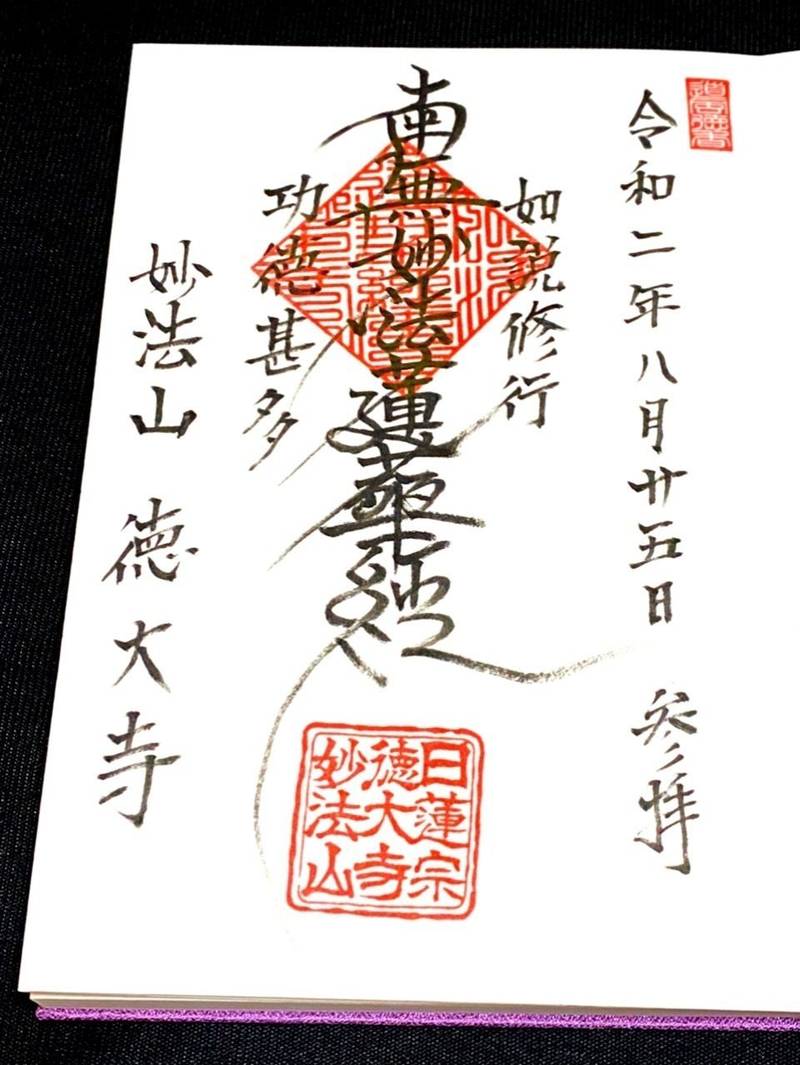 令和二年八月廿五日 参拝
如説修行
南無妙法蓮華経
功徳甚多
妙法山 徳大寺
日蓮宗
徳大寺
妙法山